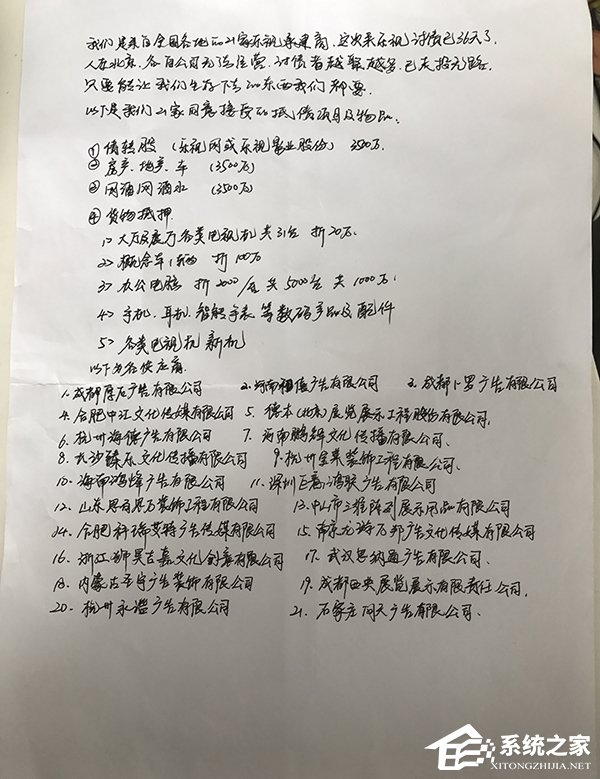 我们是来自全国各地的21家乐视承果商,这次来乐视讨债已36天了,
人在北京,各自公司无法经营,讨债者越聚越多,已走投无路,
只要能让我们生存下去的东西我们都要
以下是我们21家同意接受的抵债项目及物品.
①债转股 (乐视网或乐视影业股份) 3500万.
②房产.地产.车 (3500万)
③网酒网酒水 (3500万)
④货物抵押.
1>大厅及展厅各类电视机共31台 折20万.
2>概念车1辆 折100万
3>办公电脑 折2000/台 共5000台 共1000万.
4>手机、耳机、智能手表等数码产品及配件
5>各类电视机新机
以下为各供应商.
1.成都厚石广告有限公司 2.河南福信广告有限公司 3.成都卜罗广告有限公司
4.合肥中江文化传媒有限公司 5.德本(北京)展览展示工程股份有限公司.
6.杭州海德广告有限公司 7.河南鹏辉文化传播有限公司、
8.长沙臻乐文化传播有限公司 9.杭州全景装饰工程有限公司、
10.海南鸿烽广告有限公司 11.深圳巨嵩鸿联广告有限公司
12.山东思奇思万装饰工程有限公司 13.中山市三维陈列展示用品有限公司
14.合肥科瑞艾特广告传媒有限公司 15.南京龙游万邦广文化传媒有限公司
16.浙江狮昊古嘉文化创意有限公司 17.武汉思纳通广告有限公司、
18.内蒙古至宇广告装饰有限公司 19.成都西央展览展示有限责任公司.
20.杭州永谐广告有限公司 21.石家庄同天广告有限公司、
系统之家
XITONGZHIJIA.NET